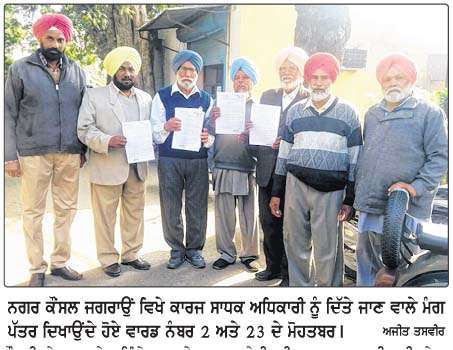 ਨਗਰ ਕੌਂਸਲ ਜਗਰਾਉਂ ਵਿਖੇ ਕਾਰਜ ਸਾਧਕ ਅਧਿਕਾਰੀ ਨੂੰ ਦਿੱਤੇ ਜਾਣ ਵਾਲੇ ਮੰਗ
ਪੱਤਰ ਦਿਖਾਉਂਦੇ ਹੋਏ ਵਾਰਡ ਨੰਬਰ 2 ਅਤੇ 23 ਦੇ ਮੋਹਤਬਰ। ਅਜੀਤ ਤਸਵੀਰ